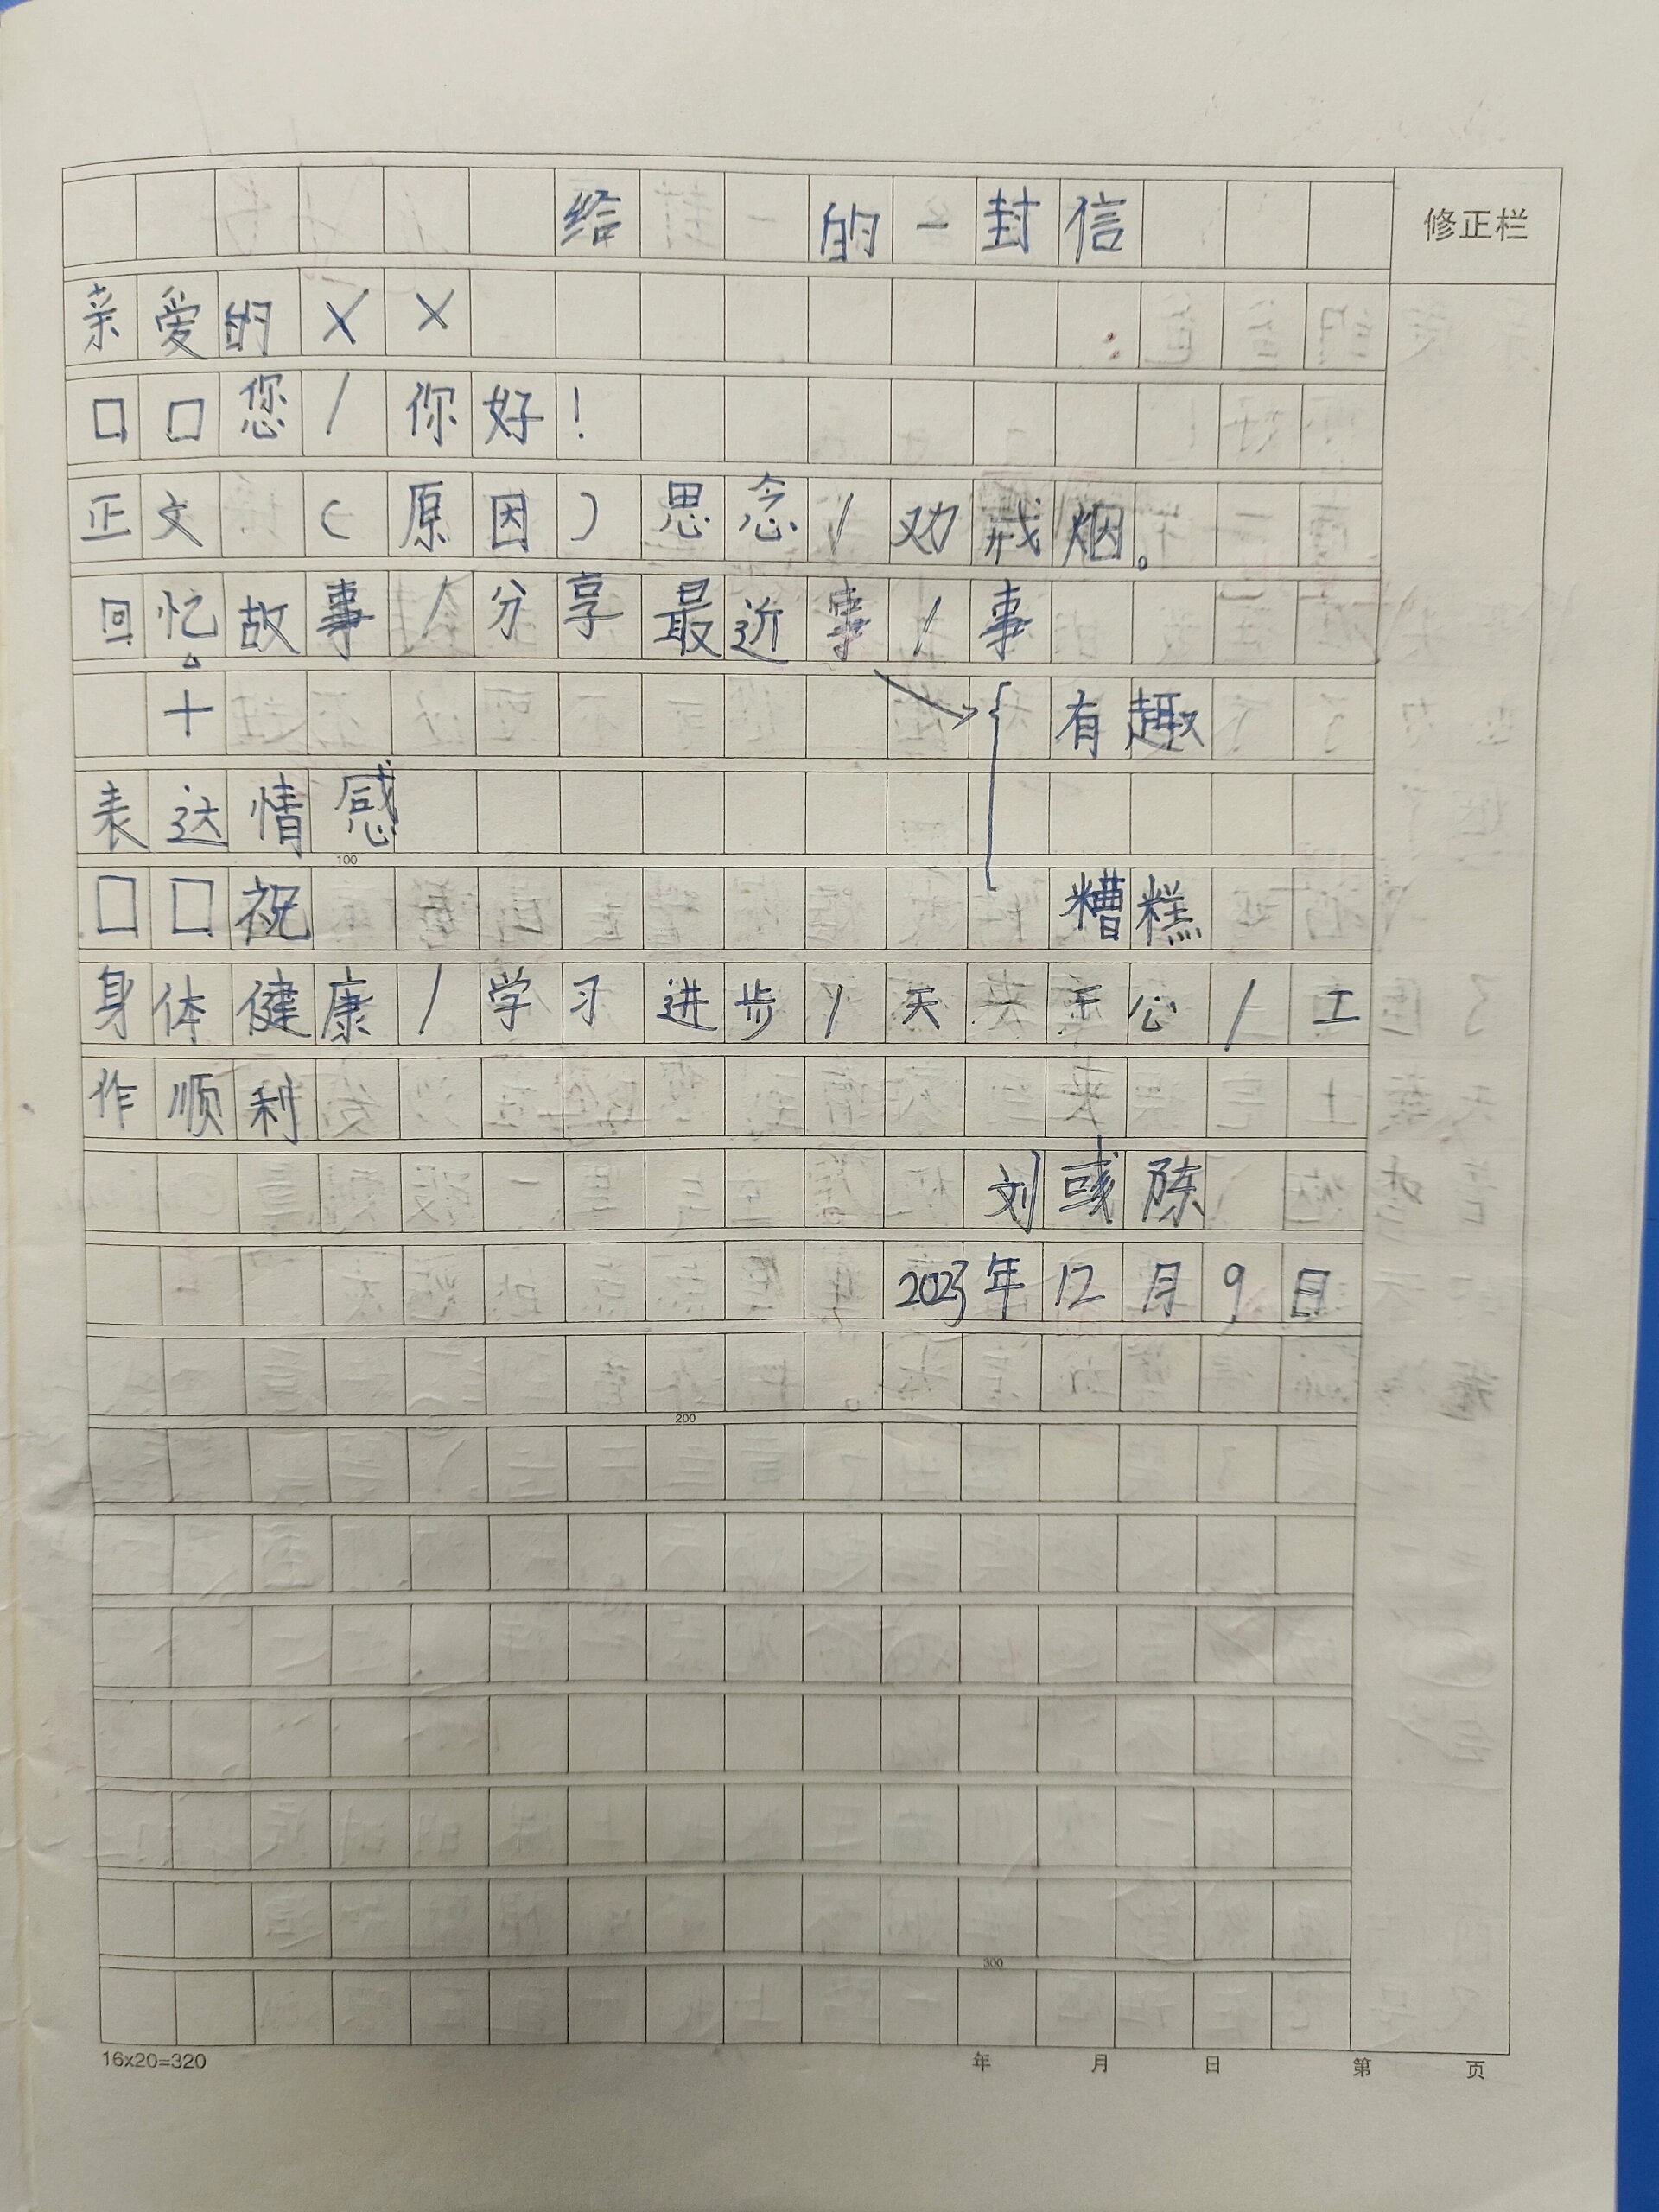 给 的一封信
修正栏
亲爱的××
□□您/你好!
正文(原因)思念/劝戒烟。
回忆故事/分享最近事/事
+ { 有趣
表达情感
100
□□祝 糟糕
身体健康/学习进步/天天开心/工
作顺利
刘彧陈
2023年12月9日
200
300
16x20=320 年 月 日 第 页